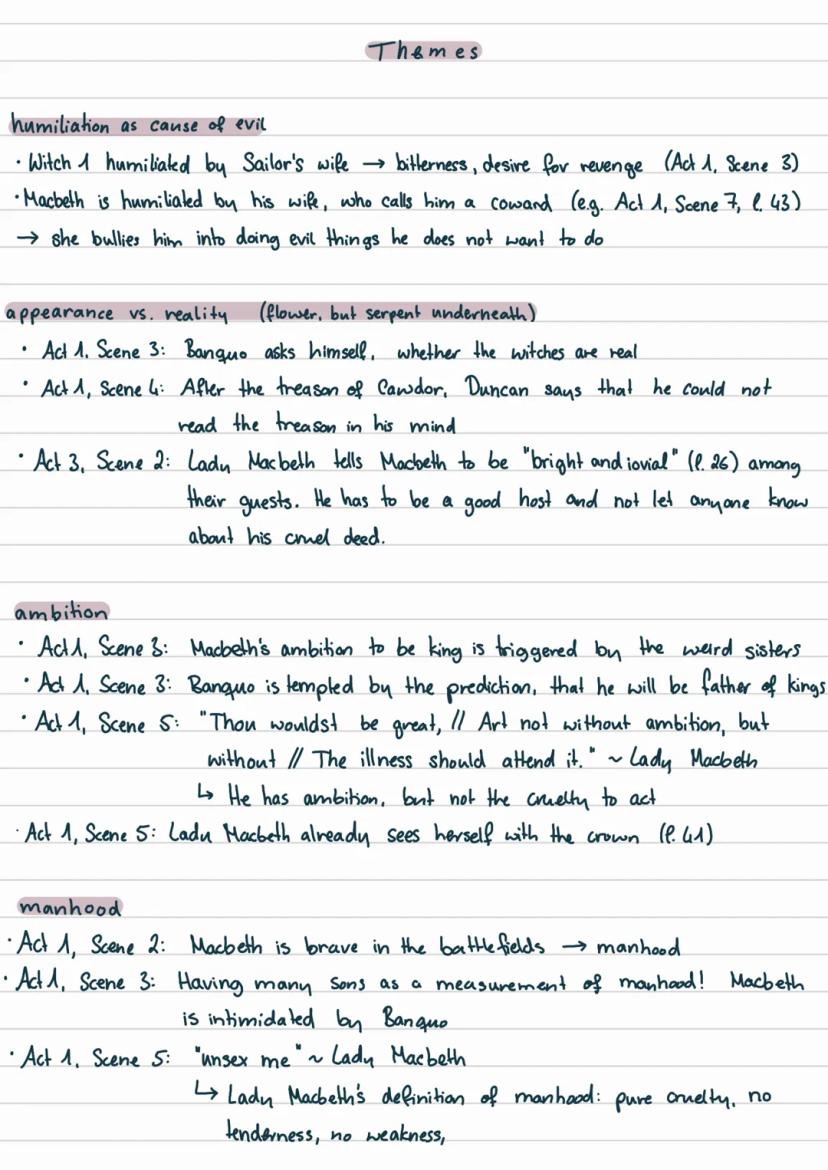 Themes
humiliation as cause of evil
· Witch 1 humiliated by Sailor's wife → bitterness, desire for revenge (Act 1, Scene 3)
· Macbeth is humiliated by his wife, who calls him a coward (e.g. Act 1, Scene 7, l. 43)
→ she bullies him into doing evil things he does not want to do
appearance vs. reality (flower, but serpent underneath)
· Act 1, Scene 3: Banquo asks himself, whether the witches are real
· Act 1, Scene 4: After the treason of Cawdor, Duncan says that he could not
read the treason in his mind
· Act 3, Scene 2: Lady Macbeth tells Macbeth to be "bright and iovial" (l. 26) among
their guests. He has to be a good host and not let anyone know
about his cruel deed.
ambition
· Act 1, Scene 3: Macbeth's ambition to be king is triggered by the weird sisters
· Act 1, Scene 3: Banquo is tempted by the prediction, that he will be father of kings
· Act 1, Scene 5: "Thou wouldst be great, // Art not without ambition, but
without // The illness should attend it." ~ Lady Macbeth
↳ He has ambition, but not the cruelty to act
· Act 1, Scene 5: Lady Macbeth already sees herself with the crown (l. 41)
manhood
· Act 1, Scene 2: Macbeth is brave in the battlefields → manhood
· Act 1, Scene 3: Having many sons as a measurement of manhood! Macbeth
is intimidated by Banquo
· Act 1, Scene 5: "unsex me" ~ Lady Macbeth
↳ Lady Macbeth's definition of manhood: pure cruelty, no
tenderness, no weakness,